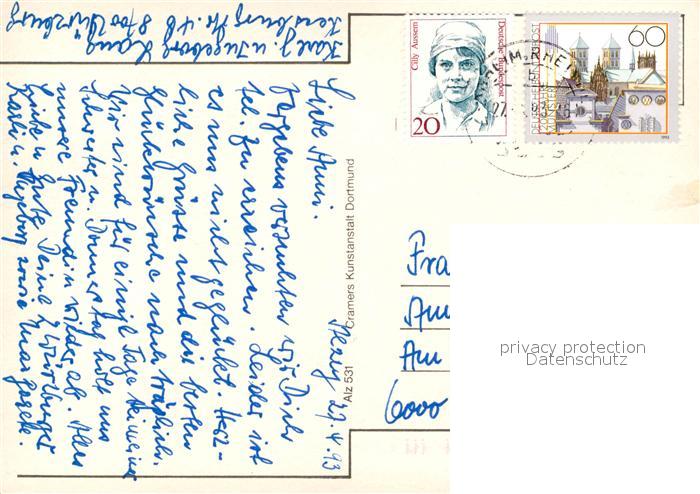 Karl J. u. Ingeborg Lang
8700 Würzburg
Alzey 27.4.93
Liebe Anni.
Vergebens versuchten wir Dich
tel. zu erreichen. Leider ist
es uns nicht geglückt. Herz-
liche Grüsse und die besten
Glückwünsche nachträglich.
Wir sind für einige Tage bei meiner
Schwester u. Donnerstag holt uns
unsere Freundin wieder ab. Alles
Liebe u. Gute Deine 2 Würzburger
Karli u. Ingeborg sowie
Cramers Kunstanstalt Dortmund
Alz 531
Cilly Aussem
Deutsche Bundespost
20
DEUTSCHE BUNDESPOST
60
1993
Fra
Am
Am
6000
privacy protection
Datenschutz